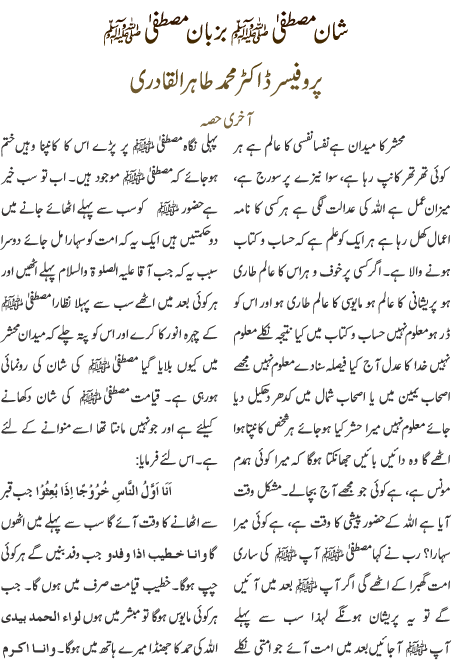 شان مصطفیٰ ﷺ بزبان مصطفیٰ ﷺ
پروفیسر ڈاکٹر محمد طاہرالقادری
آخری حصہ
محشر کا میدان ہے نفسا نفسی کا عالم ہے ہر
کوئی تھر تھر کانپ رہا ہے، سوا نیزے پر سورج ہے،
میزان عمل ہے اللہ کی عدالت لگی ہے ہر کسی کا نامہ
اعمال کھل رہا ہے ہر ایک کو علم ہے کہ حساب و کتاب
ہونے والا ہے۔ اگر کسی پر خوف و ہراس کا عالم طاری
ہو پریشانی کا عالم ہو مایوسی کا عالم طاری ہو اور اس کو
ڈر ہو معلوم نہیں حساب و کتاب میں کیا نتیجہ نکلے معلوم
نہیں خدا کا عدل آج کیا فیصلہ سنا دے معلوم نہیں مجھے
اصحاب یمین میں یا اصحاب شمال میں کدھر دھکیل دیا
جائے معلوم نہیں میرا حشر کیا ہو جائے ہر شخص کانپتا ہوا
اٹھے گا وہ دائیں بائیں جھانکتا ہوگا کہ میرا کوئی ہمدم
مونس ہے، ہے کوئی جو مجھے آج بچا لے۔ مشکل وقت
آیا ہے اللہ کے حضور پیشی کا وقت ہے، ہے کوئی میرا
سہارا؟ رب نے کہا مصطفیٰ ﷺ آپ ﷺ کی ساری
امت گھبرا کے اٹھے گی اگر آپ ﷺ بعد میں آئیں
گے تو یہ پریشان ہونگے لہذا سب سے پہلے
آپ ﷺ آجائیں بعد میں امت آئے جو امتی نکلے
پہلی نگاہ مصطفیٰ ﷺ پر پڑے اس کا کانپنا وہیں ختم
ہو جائے کہ مصطفیٰ ﷺ موجود ہیں۔ اب تو سب خیر
ہے حضور ﷺ کو سب سے پہلے اٹھائے جانے میں
دو حکمتیں ہیں ایک یہ کہ امت کو سہارا مل جائے دوسرا
سبب یہ کہ جب آقا علیہ الصلوٰۃ والسلام پہلے اٹھیں اور
ہر کوئی بعد میں اٹھے سب سے پہلا نظارا مصطفیٰ ﷺ
کے چہرہ انور کا کرے اور اس کو پتہ چلے کہ میدان محشر
میں کیوں بلایا گیا مصطفیٰ ﷺ کی شان کی رونمائی
ہو رہی ہے۔ قیامت مصطفیٰ ﷺ کی شان دکھانے
کیلئے ہے اور جو نہیں مانتا تھا اسے منوانے کے لئے
ہے۔ اس لئے فرمایا:
اَنَا اَوَّلُ النَّاسِ خُرُوْجًا اِذَا بُعِثُوْا جب قبر
سے اٹھانے کا وقت آئے گا سب سے پہلے میں اٹھوں
گا وانا خطیب اذا وفدو جب وفد بنیں گے ہر کوئی
چپ ہوگا۔ خطیب قیامت صرف میں ہوں گا۔ جب
ہر کوئی مایوس ہوگا تو مبشر میں ہوں لواء الحمد بیدی
اللہ کی حمد کا جھنڈا میرے ہاتھ میں ہوگا۔ وانا اکرم